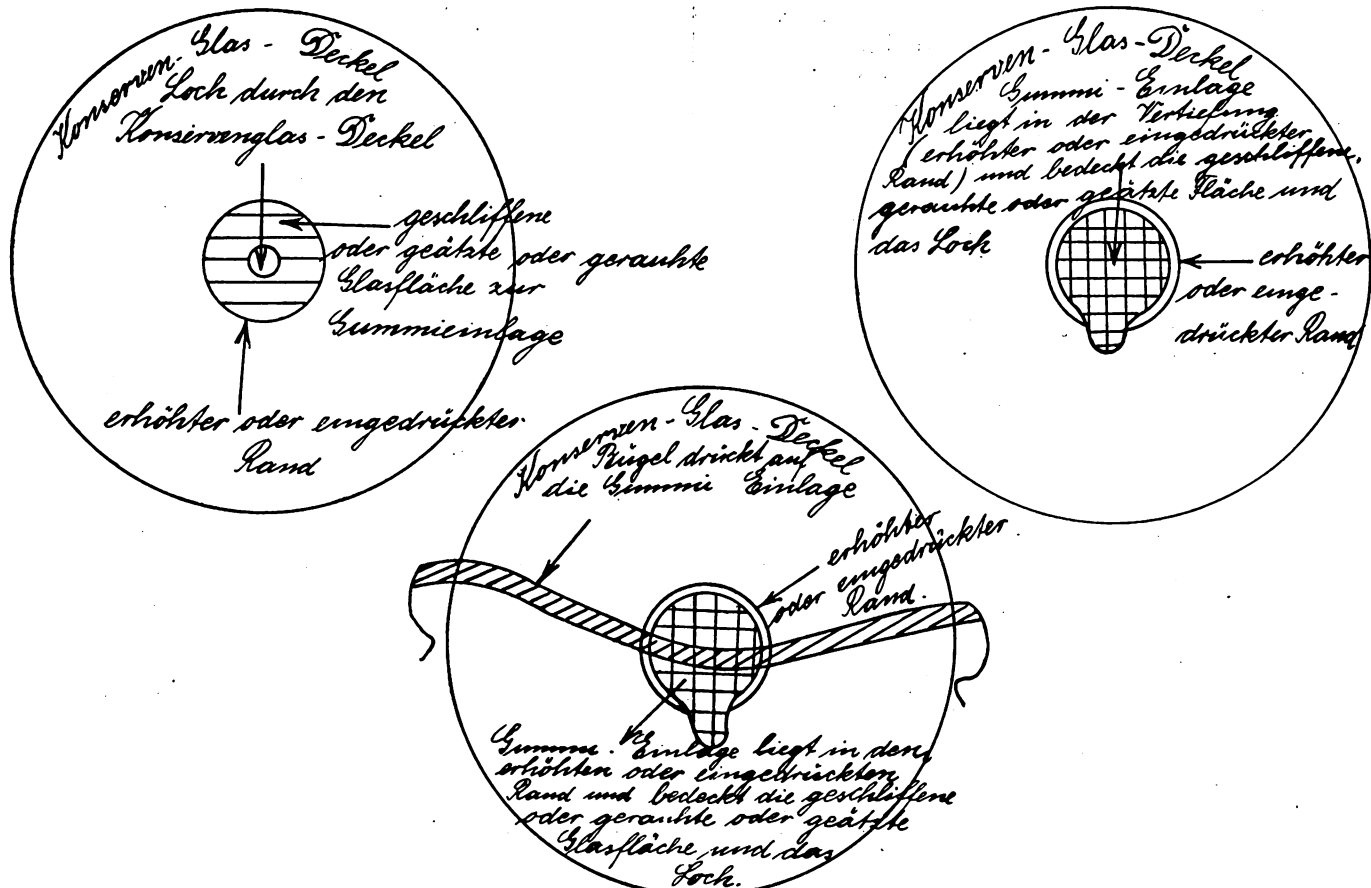 Konserven-Glas-Deckel
Loch durch den
Konservenglas-Deckel
geschliffene
oder geätzte oder gerauhte
Glasfläche zur
Gummieinlage
erhöhter oder eingedrückter
Rand
Konserven-Glas-Deckel
Gummi-Einlage
liegt in der Vertiefung
(erhöhter oder eingedrückter
Rand) und bedeckt die geschliffene,
gerauhte oder geätzte Fläche und
das Loch
erhöhter
oder einge-
drückter Rand
Konserven-Glas-Deckel
Bügel drückt auf
die Gummi Einlage
erhöhter
oder eingedrückter
Rand.
Gummi-Einlage liegt in den
erhöhten oder eingedrückten
Rand und bedeckt die geschliffene
oder gerauhte oder geätzte
Glasfläche und das
Loch.